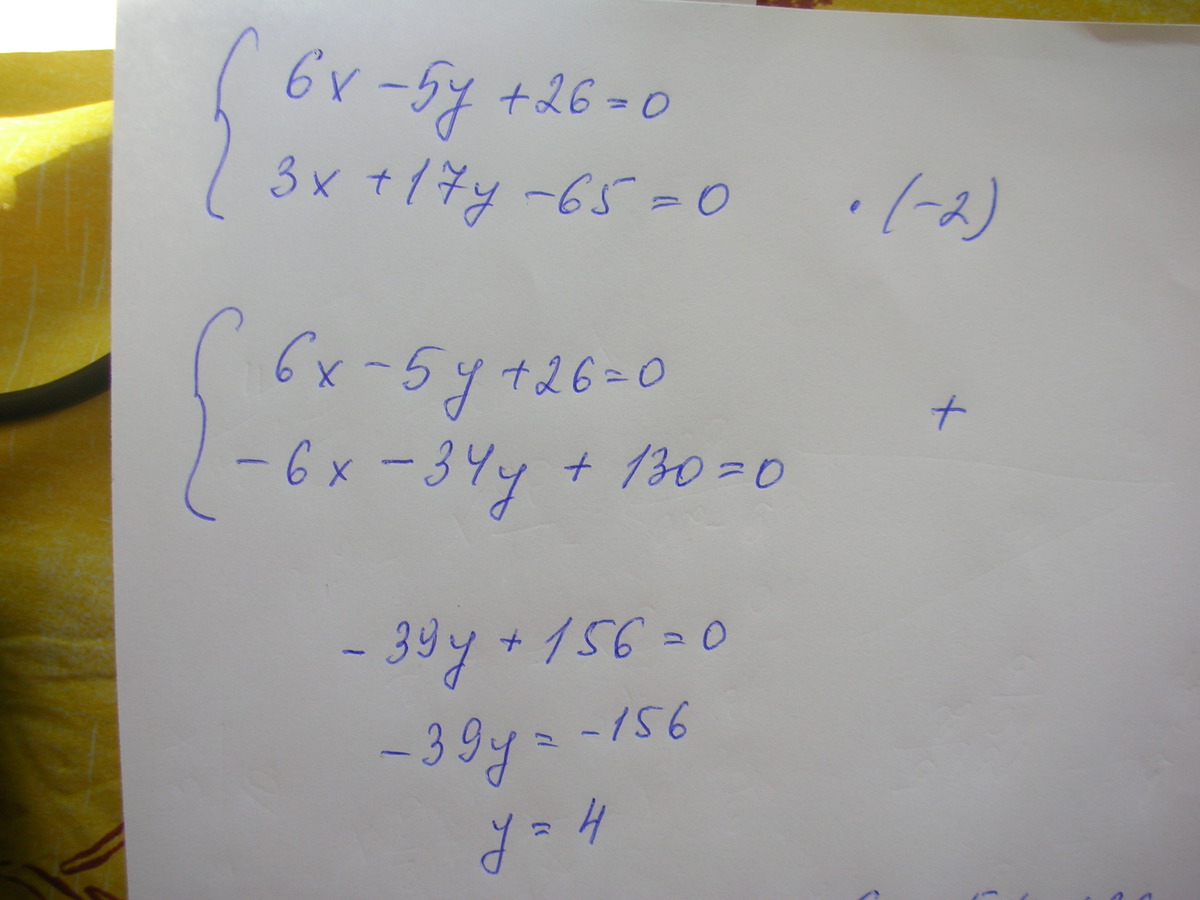 6x - 5y + 26 = 0
3x + 17y - 65 = 0 · (-2)
6x - 5y + 26 = 0
+
- 6x - 34y + 130 = 0
- 39y + 156 = 0
- 39y = - 156
y = 4